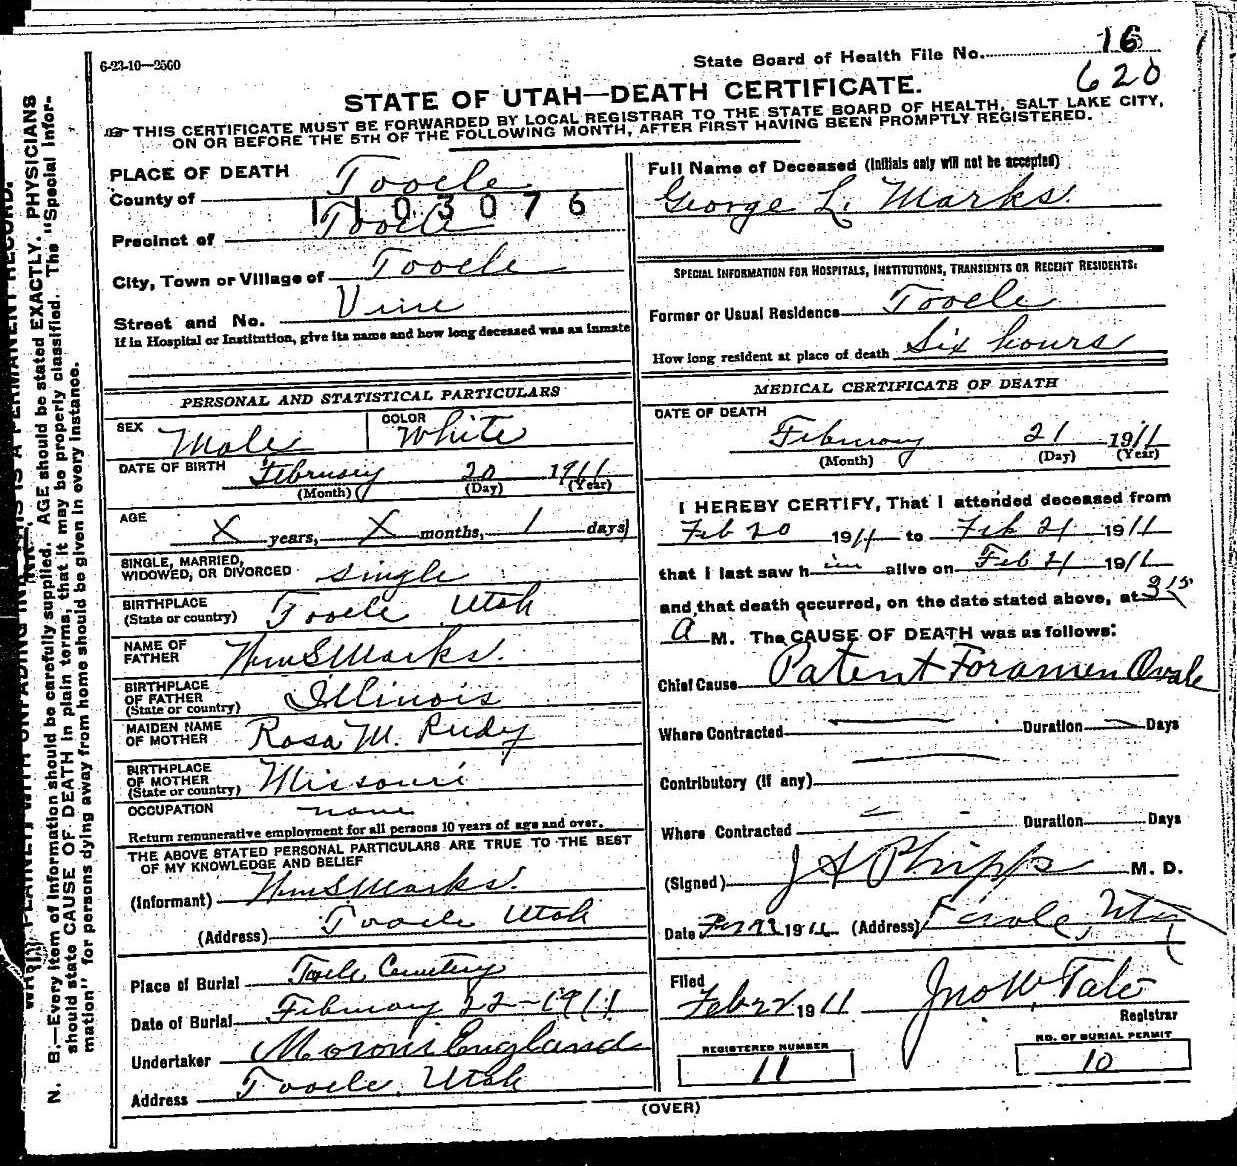 6-23-10—2500
State Board of Health File No. 16
620
STATE OF UTAH—DEATH CERTIFICATE.
THIS CERTIFICATE MUST BE FORWARDED BY LOCAL REGISTRAR TO THE STATE BOARD OF HEALTH, SALT LAKE CITY,
ON OR BEFORE THE 5TH OF THE FOLLOWING MONTH, AFTER FIRST HAVING BEEN PROMPTLY REGISTERED.
PLACE OF DEATH
County of Tooele
1103076
Precinct of Tooele
City, Town or Village of Tooele
Street and No. Vine
If in Hospital or Institution, give its name and how long deceased was an inmate
Full Name of Deceased (Initials only will not be accepted)
George L. Marks.
SPECIAL INFORMATION FOR HOSPITALS, INSTITUTIONS, TRANSIENTS OR RECENT RESIDENTS:
Former or Usual Residence Tooele
How long resident at place of death Six hours
PERSONAL AND STATISTICAL PARTICULARS
SEX Male COLOR White
DATE OF BIRTH February 20 1911
(Month) (Day) (Year)
AGE X years, X months, 1 days
SINGLE, MARRIED,
WIDOWED, OR DIVORCED single
BIRTHPLACE
(State or country) Tooele Utah
NAME OF
FATHER Wm S Marks.
BIRTHPLACE
OF FATHER
(State or country) Illinois
MAIDEN NAME
OF MOTHER Rosa M. Rudy
BIRTHPLACE
OF MOTHER
(State or country) Missouri
OCCUPATION none
Return remunerative employment for all persons 10 years of age and over.
THE ABOVE STATED PERSONAL PARTICULARS ARE TRUE TO THE BEST
OF MY KNOWLEDGE AND BELIEF
(Informant) Wm S Marks.
(Address) Tooele Utah
Place of Burial Tooele Cemetery
Date of Burial February 22-1911
Undertaker Moroni England
Address Tooele, Utah
MEDICAL CERTIFICATE OF DEATH
DATE OF DEATH
February 21 1911
(Month) (Day) (Year)
I HEREBY CERTIFY, That I attended deceased from
Feb 20 1911 to Feb 21 1911
that I last saw him alive on Feb 21 1911
and that death occurred, on the date stated above, at 3 15
A M. The CAUSE OF DEATH was as follows:
Chief Cause Patent Foramen Ovale
Where Contracted Duration Days
Contributory (if any)
Where Contracted Duration Days
(Signed) J A Phipps M. D.
Date 1911 (Address) Tooele, Utah
Filed
Feb 22 1911 Jno W. Tate
Registrar
REGISTERED NUMBER
11
NO. OF BURIAL PERMIT
10
(OVER)
N. B.—Every item of information should be carefully supplied. AGE should be stated EXACTLY. PHYSICIANS
should state CAUSE OF DEATH in plain terms, that it may be properly classified. The "Special Infor-
mation" for persons dying away from home should be given in every instance.